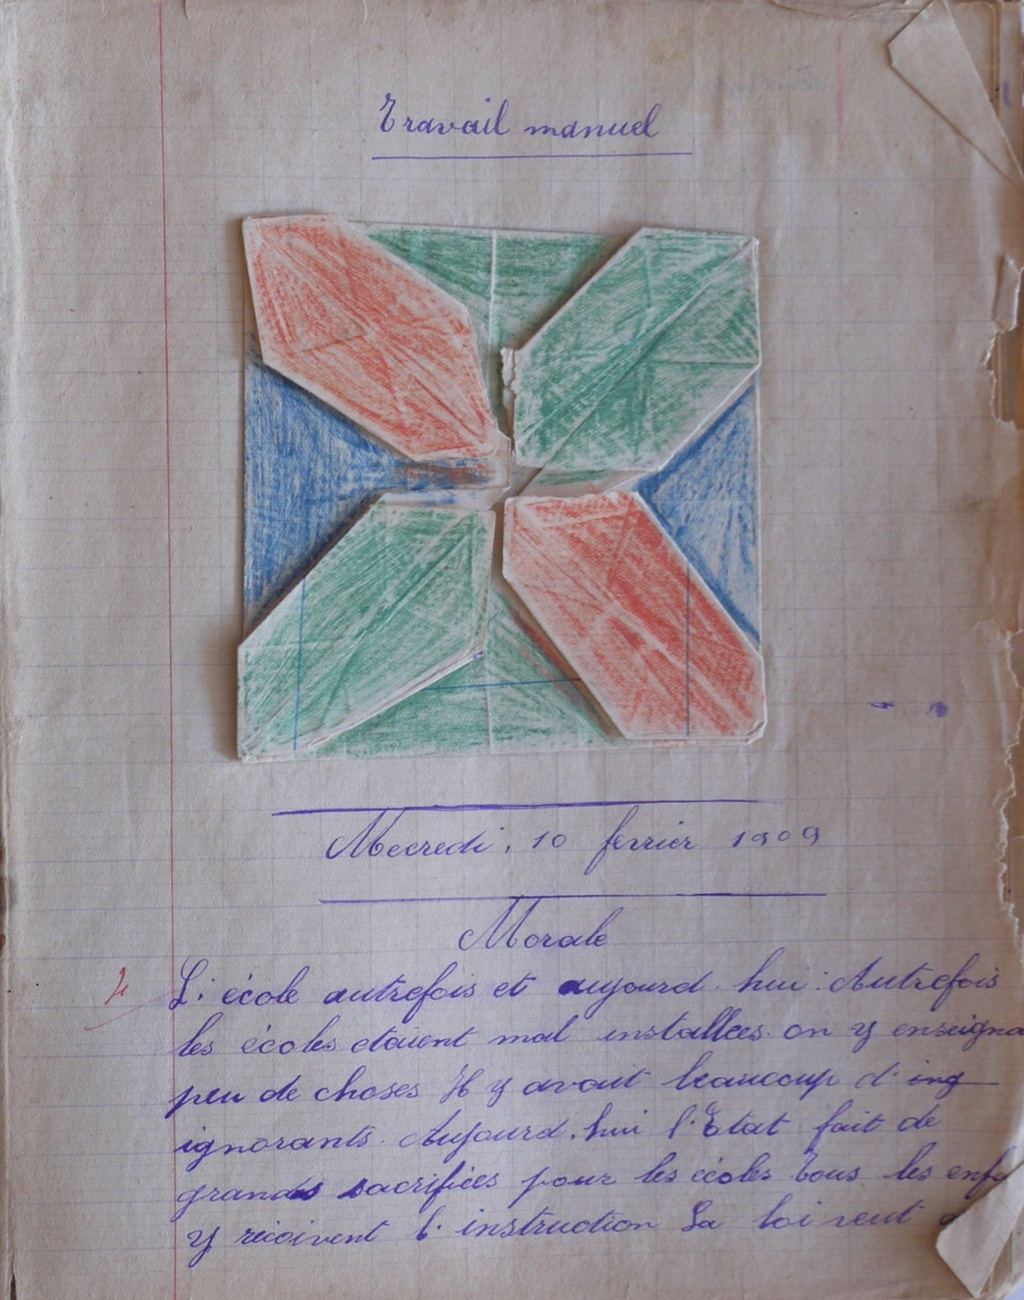 Travail manuel
Mecredi, 10 ferrier 1909
Morale
L'école autrefois et aujourd'hui : Autrefois
les écoles étaient mal installées on y enseigna
peu de choses Il y avait beaucoup d'ing
ignorants. Aujourd'hui l'Etat fait de
grands sacrifices pour les écoles Tous les enfa
y reçoivent l'instruction La loi veut